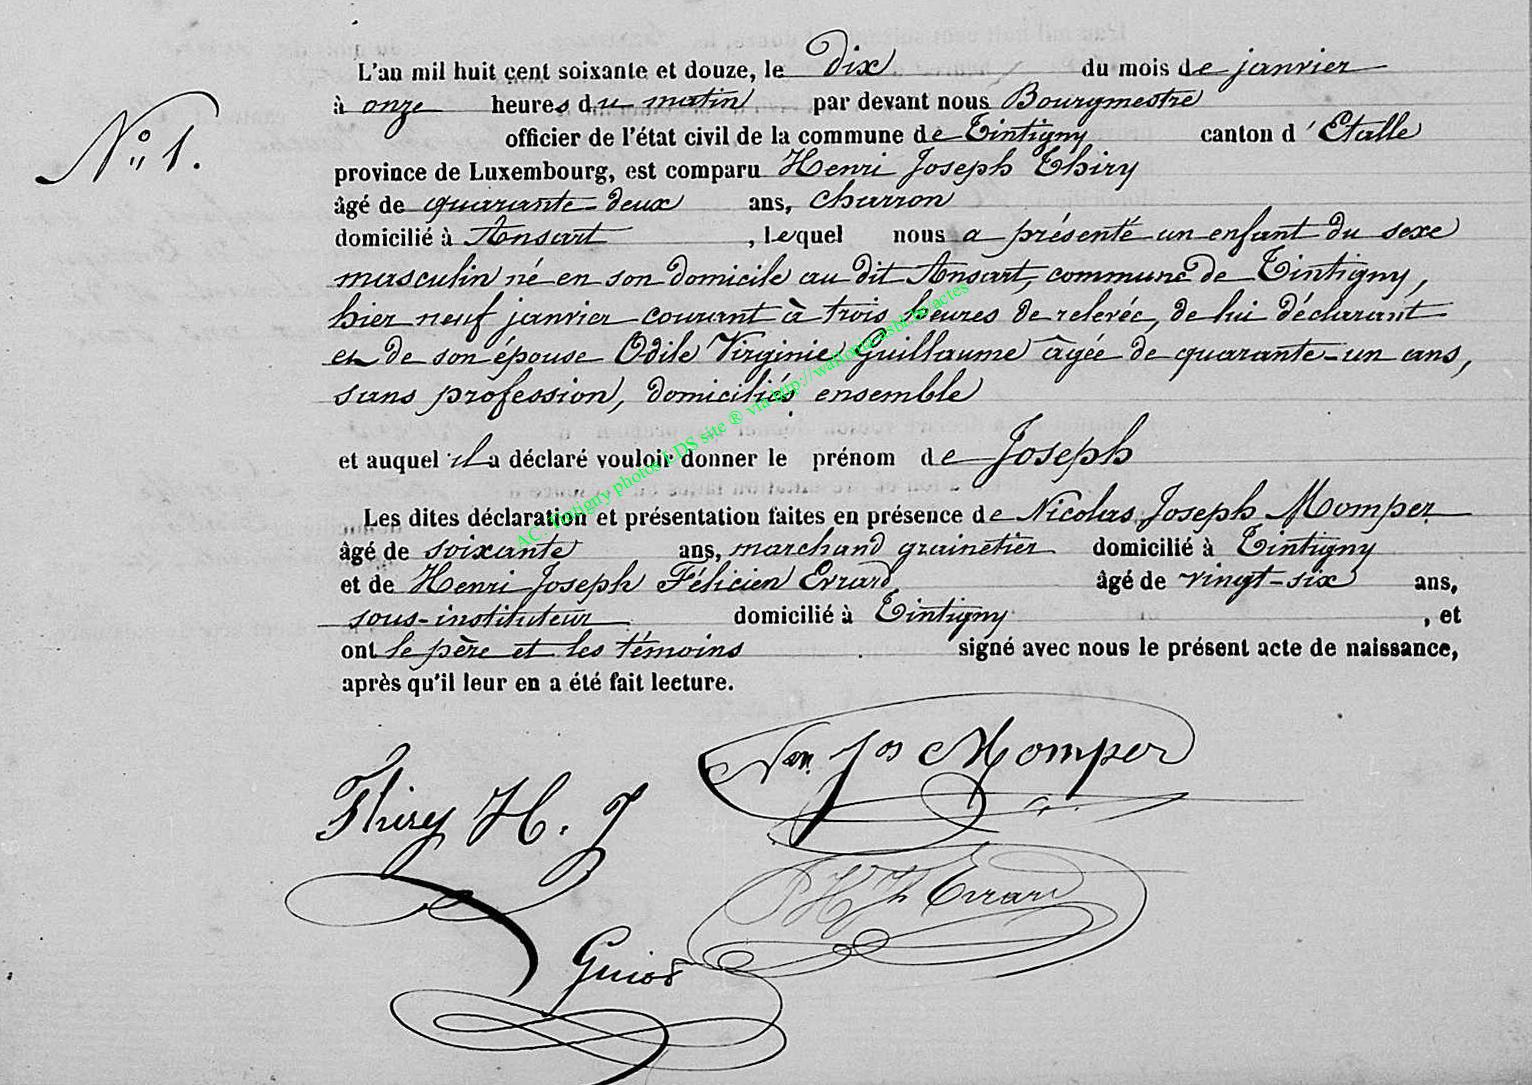 L'an mil huit cent soixante et douze, le dix du mois de janvier
à onze heures du matin par devant nous Bourgmestre
N° 1.
officier de l'état civil de la commune de Tintigny canton d'Etalle
province de Luxembourg, est comparu Henri Joseph Thiry
âgé de quarante-deux ans, charron
domicilié à Ansart , lequel nous a présenté un enfant du sexe
masculin né en son domicile au dit Ansart, commune de Tintigny,
hier neuf janvier courant à trois heures de relevée, de lui déclarant
et de son épouse Odile Virginie Guillaume âgée de quarante-un ans,
sans profession, domiciliés ensemble
et auquel il a déclaré vouloir donner le prénom de Joseph
Les dites déclaration et présentation faites en présence de Nicolas Joseph Momper
âgé de soixante ans, marchand grainetier domicilié à Tintigny
et de Henri Joseph Félicien Errard âgé de vingt-six ans,
sous-instituteur domicilié à Tintigny , et
ont le père et les témoins signé avec nous le présent acte de naissance,
après qu'il leur en a été fait lecture.
Jos Momper
Thiry H. J
Errard
AC Tintigny photos LDS site ® via http://wallonia-asbl.be/actes